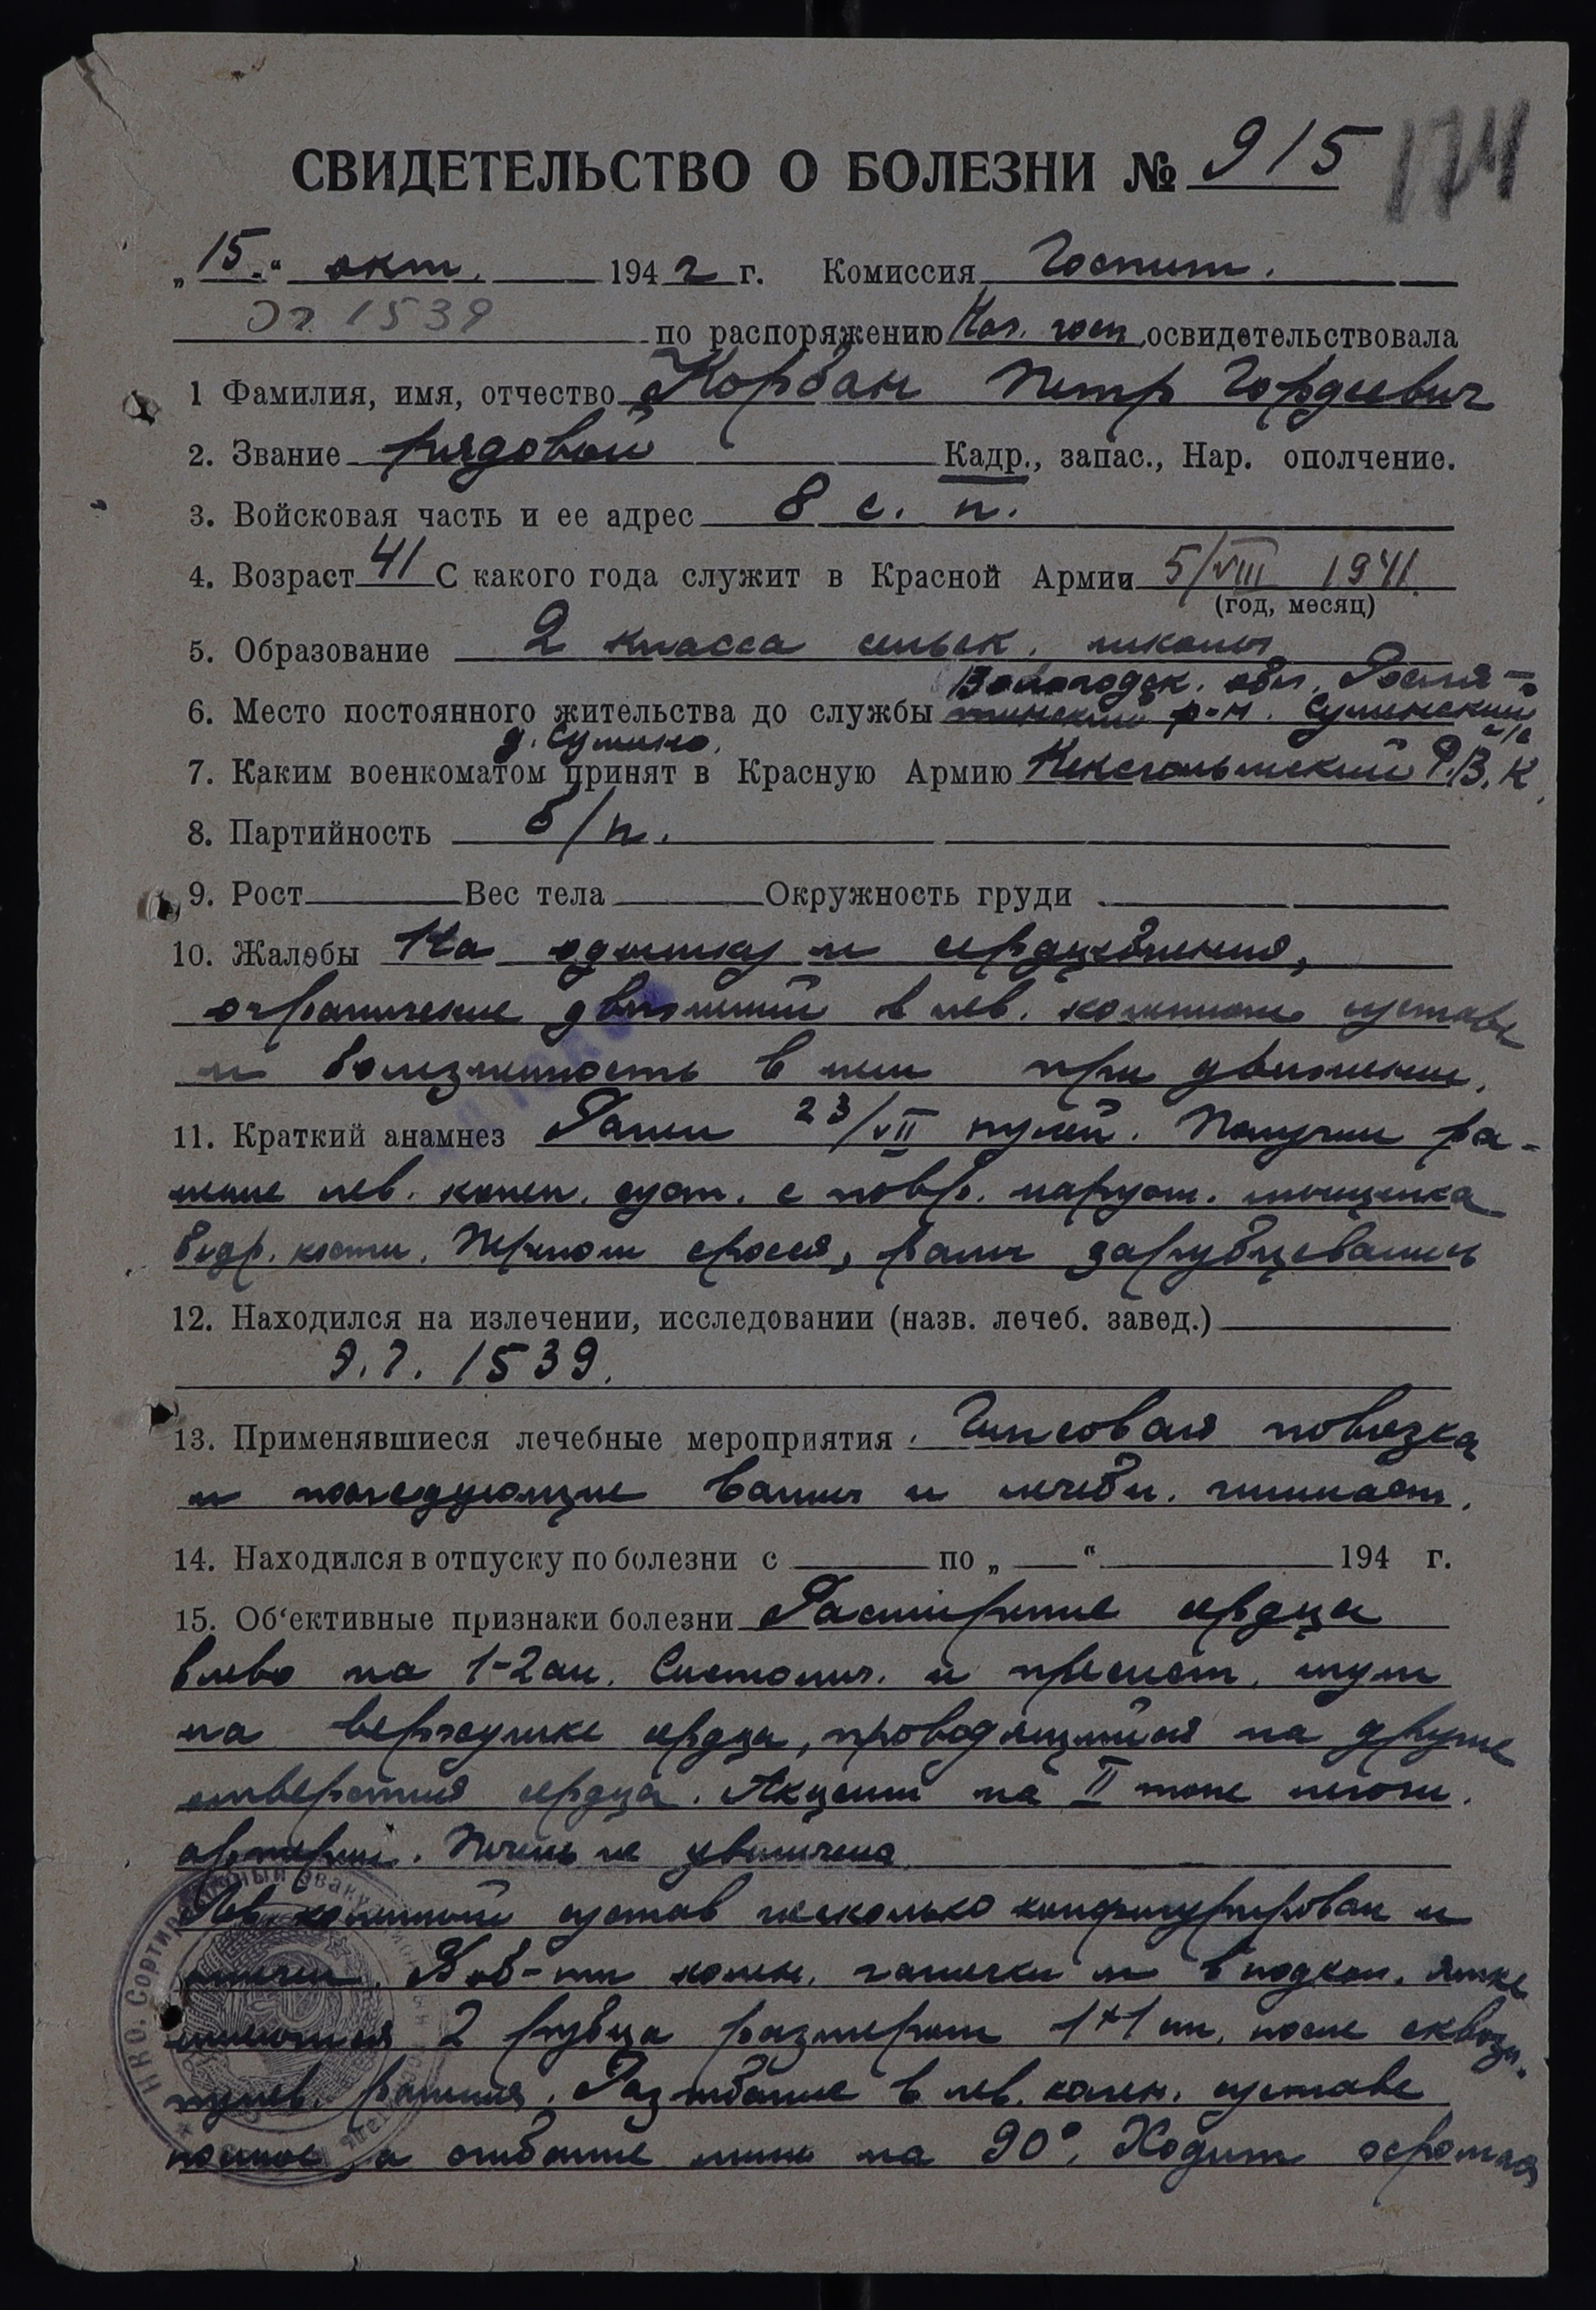 СВИДЕТЕЛЬСТВО О БОЛЕЗНИ № 915
174
„15.“ окт. 1942 г. Комиссия Госпит.
Эг 1539 по распоряжению Нач. госп. освидетельствовала
1 Фамилия, имя, отчество Корбан Петр Гордеевич
2. Звание рядовой Кадр., запас., Нар. ополчение.
3. Войсковая часть и ее адрес 8 с. п.
4. Возраст 41 С какого года служит в Красной Армии 5/VIII 1941.
(год, месяц)
5. Образование 2 класса сельск. школы
Вологодск. обл.
6. Место постоянного жительства до службы р-н. Суминский с/с
д. Сумино.
7. Каким военкоматом принят в Красную Армию Кексгольмский Р.В.К.
8. Партийность б/п.
9. Рост Вес тела Окружность груди
10. Жалобы На одышку и сердцебиения,
ограничение движений в лев. коленном суставе
и болезненность в нем при движении.
11. Краткий анамнез Ранен 23/VII пулей. Получил ра-
нение лев. колен. суст. с повр. наружн. мыщелка
бедр. кости. Перелом сросся, раны зарубцевались
12. Находился на излечении, исследовании (назв. лечеб. завед.)
Э.Г. 1539.
13. Применявшиеся лечебные мероприятия. Гипсовая повязка
и последующие ванны и лечебн. гимнаст.
14. Находился в отпуску по болезни с по „ “ 194 г.
15. Об‘ективные признаки болезни Расширение сердца
влево на 1-2 см. Систолич. и пресист. шум
на верхушке сердца, проводящийся на другие
отверстия сердца. Акцент на II тоне легочн.
артерии. Печень не увеличена
Лев. коленный сустав несколько и
отечен. В об-ти колен. чашечки и в подкол. ямке
имеются 2 рубца размером 1×1 см. после сквозн.
пулев. ранения. Разгибание в лев. колен. суставе
полное, а сгибание лишь на 90°. Ходит хромая
НКО. Сортировочный эвакуационный